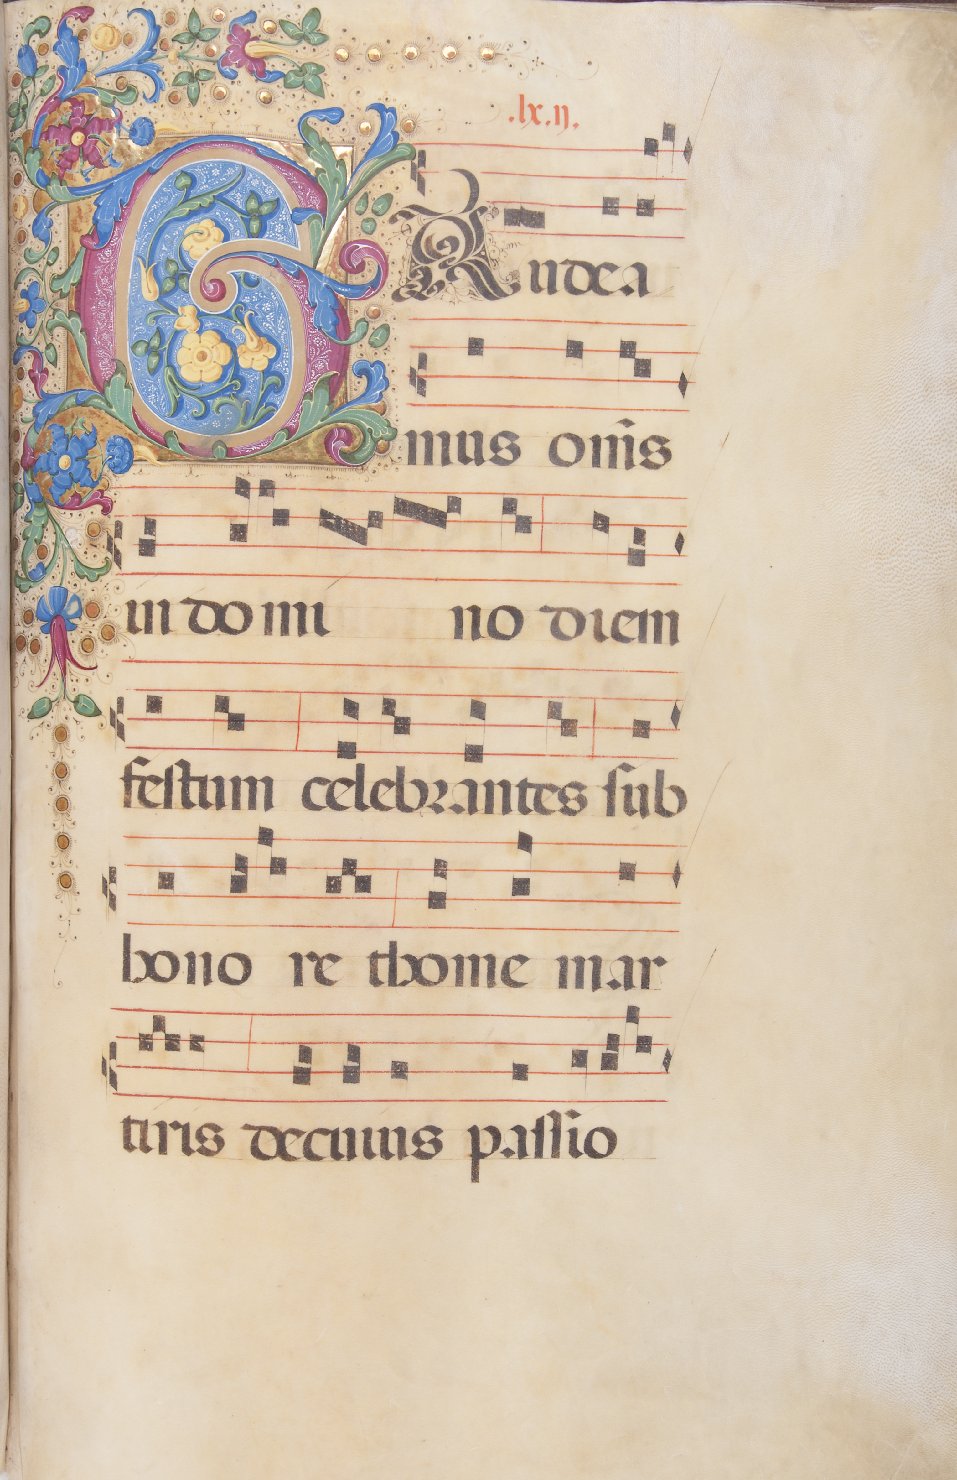 .lx.ıı.
GAudea
mus om̄s
in do mi no diem
festum celebrantes sub
hono re thome mar
tiris decuius passio